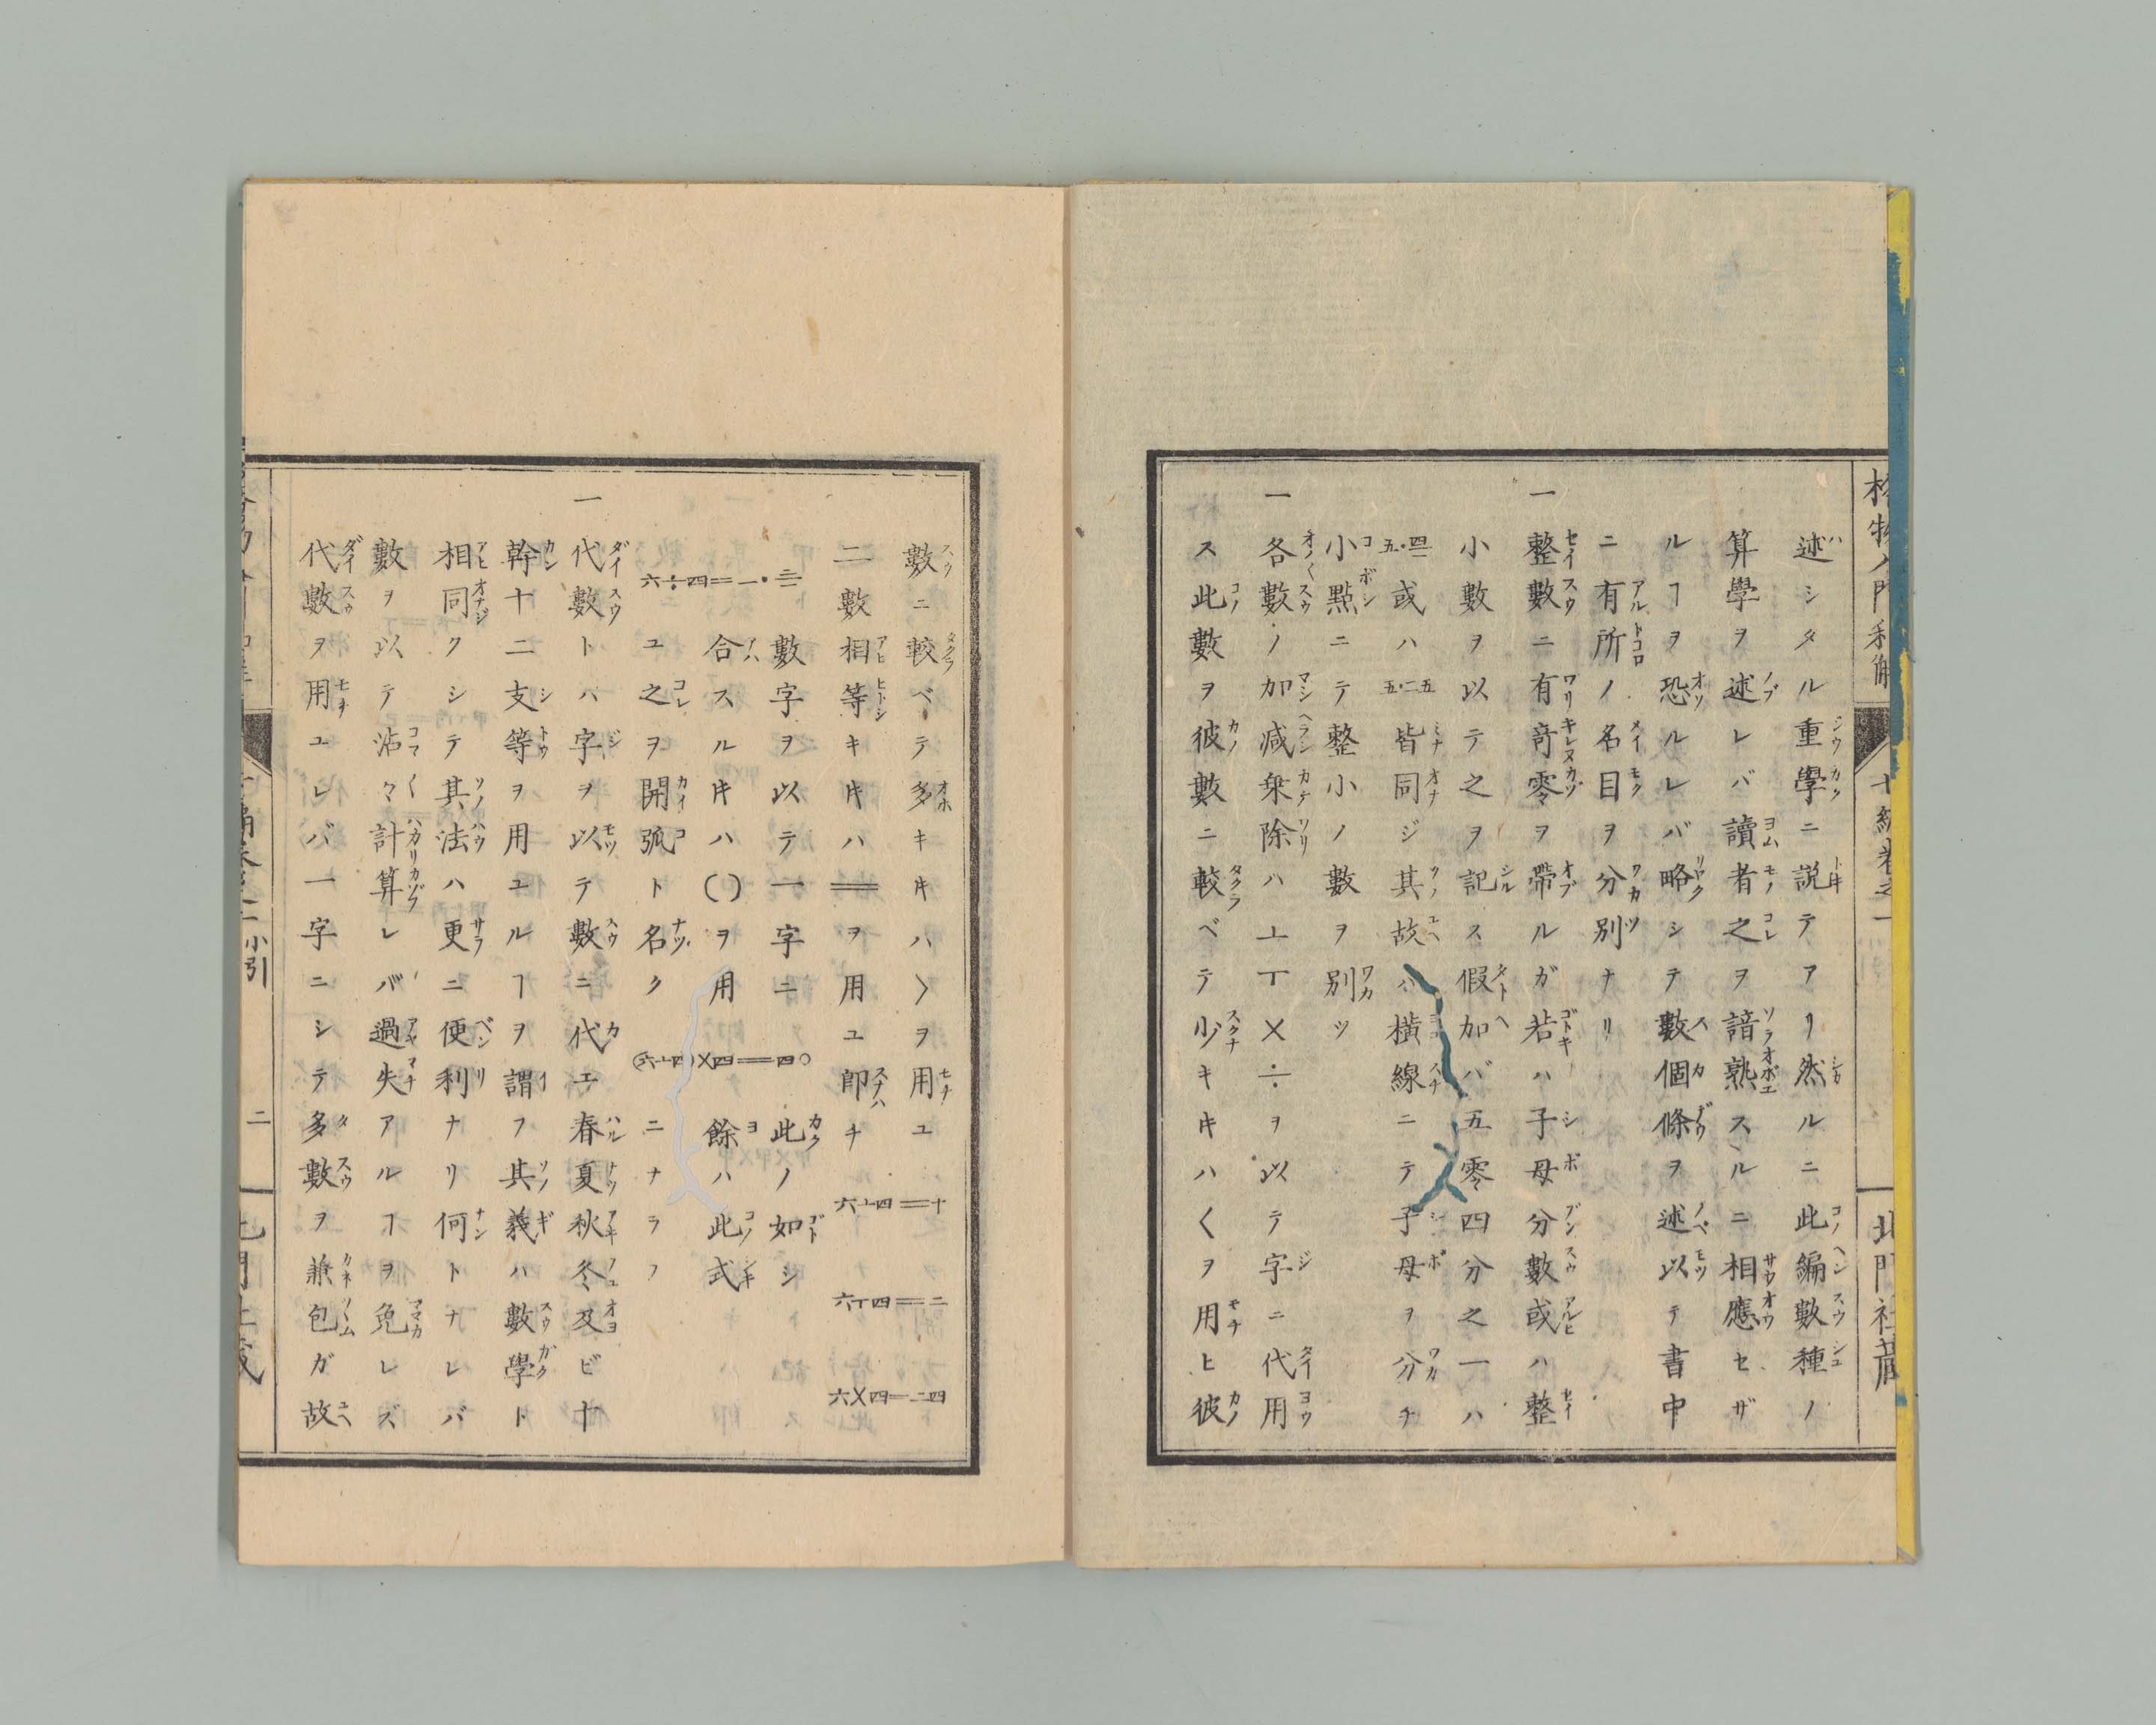 格物入門和解
十編卷之一
北門社蔵
述シタル重學ニ説テアリ然ルニ此編數種ノ
算學ヲ述レバ讀者之ヲ諳熟スルニ相應セザ
ルヿヲ恐ルレバ略シテ數個條ヲ述以テ書中
ニ有所ノ名目ヲ分別ナリ
一 整數ニ有竒零ヲ帶ルガ若ハ子母分數或ハ整
小數ヲ以テ之ヲ記ス假加バ五零四分之一ハ
或ハ五・二五皆同ジ其故ハ横線ニテ子母ヲ分チ
小點ニテ整小ノ數ヲ別ツ
一 各數ノ加减乗除ハ⊥丅×÷ヲ以テ字ニ代用
ス此數ヲ彼數ニ較ベテ少キキハ〈ヲ用ヒ彼
數ニ較ベテ多キキハ〉ヲ用ユ
二數相等キキハ═ヲ用ユ即チ 六⊥四═十 六丅四═二 六×四═二四
六÷四═一・五 數字ヲ以テ一字ニ此ノ如シ
合スルキハ()ヲ用 餘ハ此式
ユ之ヲ開弧ト名ク (六⊥四)×四═四〇 ニナラフ
一 代數トハ字ヲ以テ數ニ代エ春夏秋冬及ビ十
幹十二支等ヲ用ユルヿヲ謂フ其義ハ數學ト
相同クシテ其法ハ更ニ便利ナリ何トナレバ
數ヲ以テ沾々計算レバ過失アルヿヲ免レズ
代數ヲ用ユレバ一字ニシテ多數ヲ兼包ガ故
小引
二